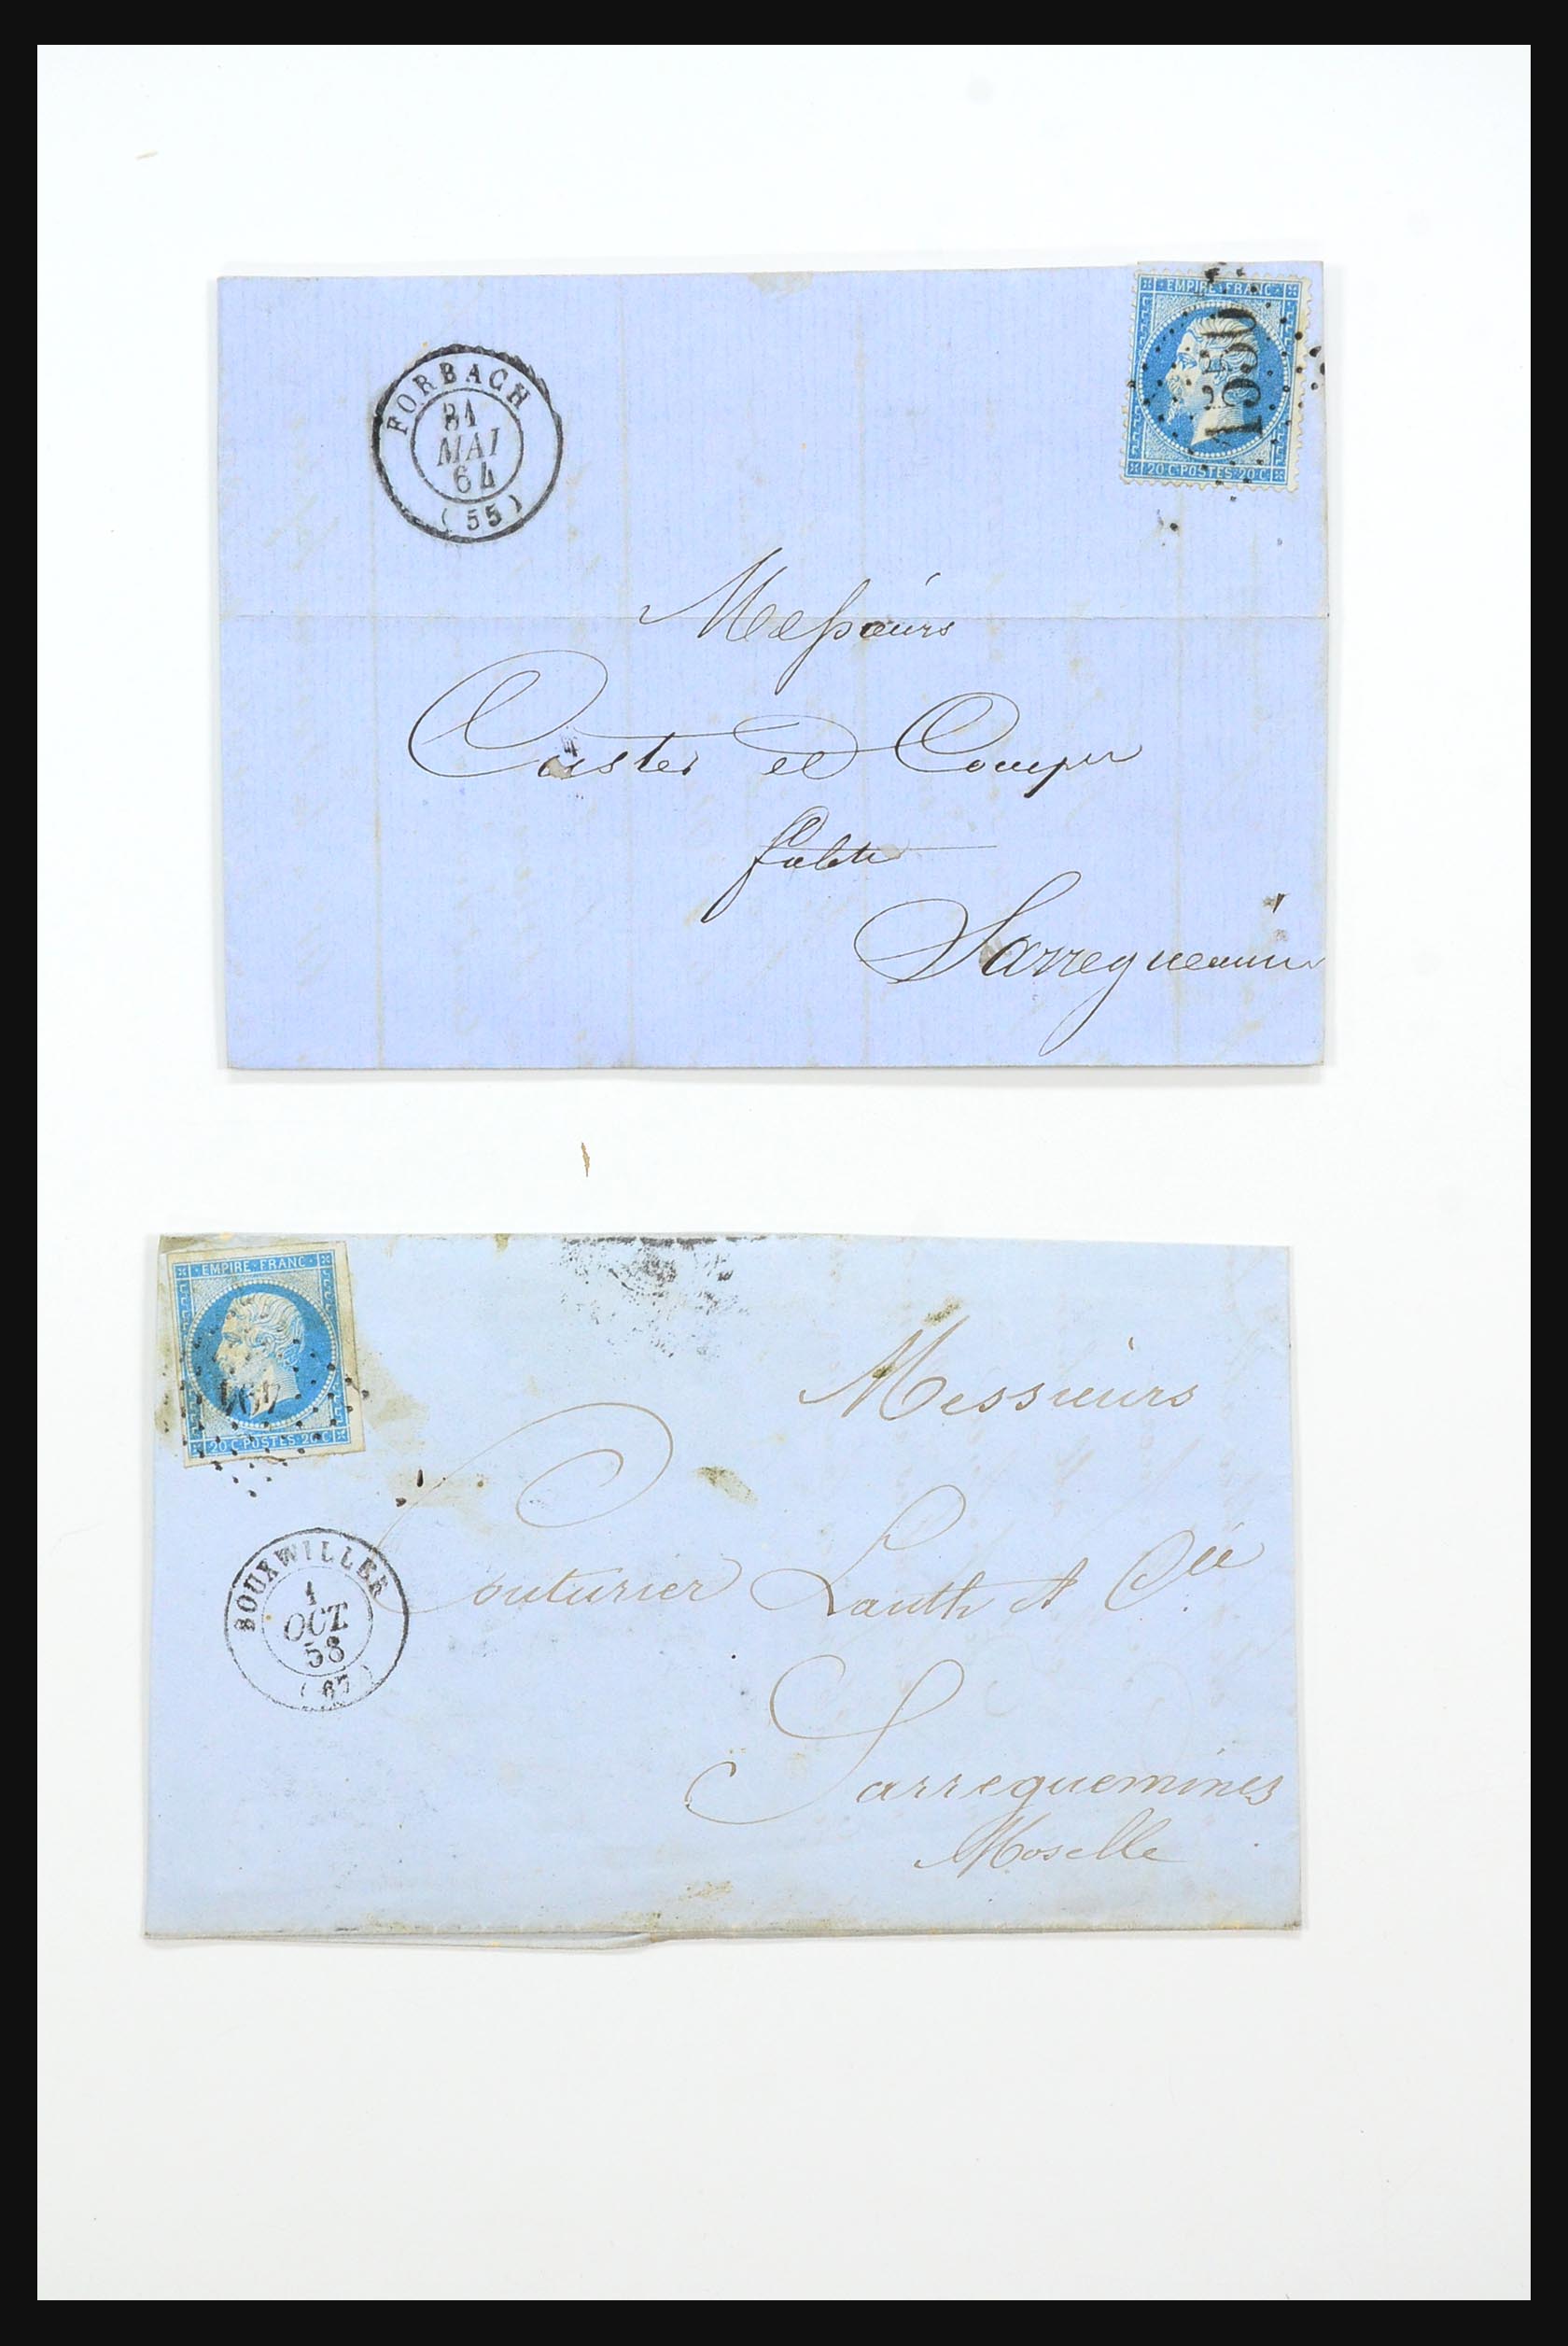 EMPIRE · FRANC
1550
20 C · POSTES · 20 C
FORBACH
31
MAI
64
( 55 )
Messieurs
et
Sarreguemines
EMPIRE · FRANC
494
20 C · POSTES · 20 C
BOUXWILLER
1
OCT.
58
( 67 )
Messieurs
Couturier Lauth et Cie
Sarreguemines
Moselle